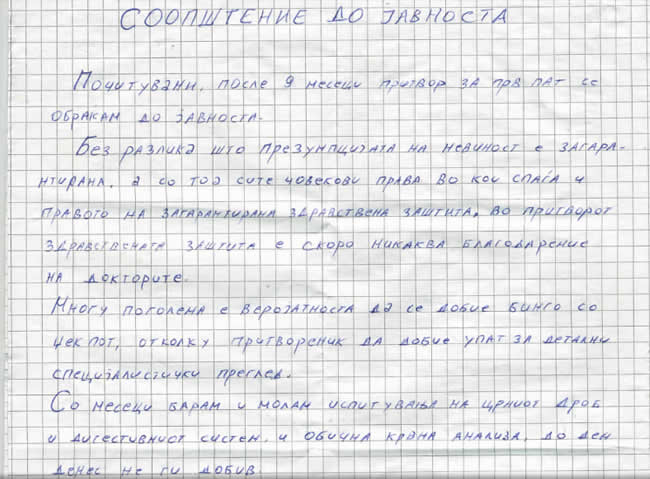 СООПШТЕНИЕ ДО ЈАВНОСТА
Почитувани, после 9 месеци притвор за прв пат се
обраќам до јавноста.
Без разлика што презумпцијата на невиност е загара-
нтирана, а со тоа сите човекови права во кои спаѓа и
правото на загарантирана здравствена заштита, во притворот
здравствената заштита е скоро никаква благодарение
на докторите.
Многу поголема е веројатноста да се добие бинго со
џекпот, отколку притвореник да добие упат за детални
специјалистички преглед.
Со месеци барам и молам испитувања на црниот дроб
и дигестивниот систем, и обична крвна анализа, до ден
денес не ги добив